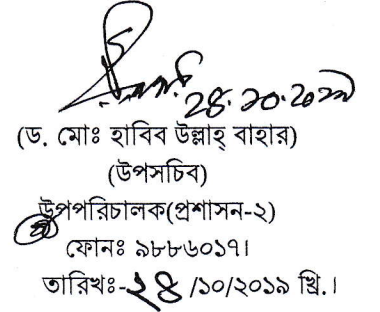 ২৪.১০.২০১৯
(ড. মোঃ হাবিব উল্লাহ্ বাহার)
(উপসচিব)
উপপরিচালক(প্রশাসন-২)
ফোনঃ ৯৮৮৬০১৭।
তারিখঃ-২৪ /১০/২০১৯ খ্রি.।